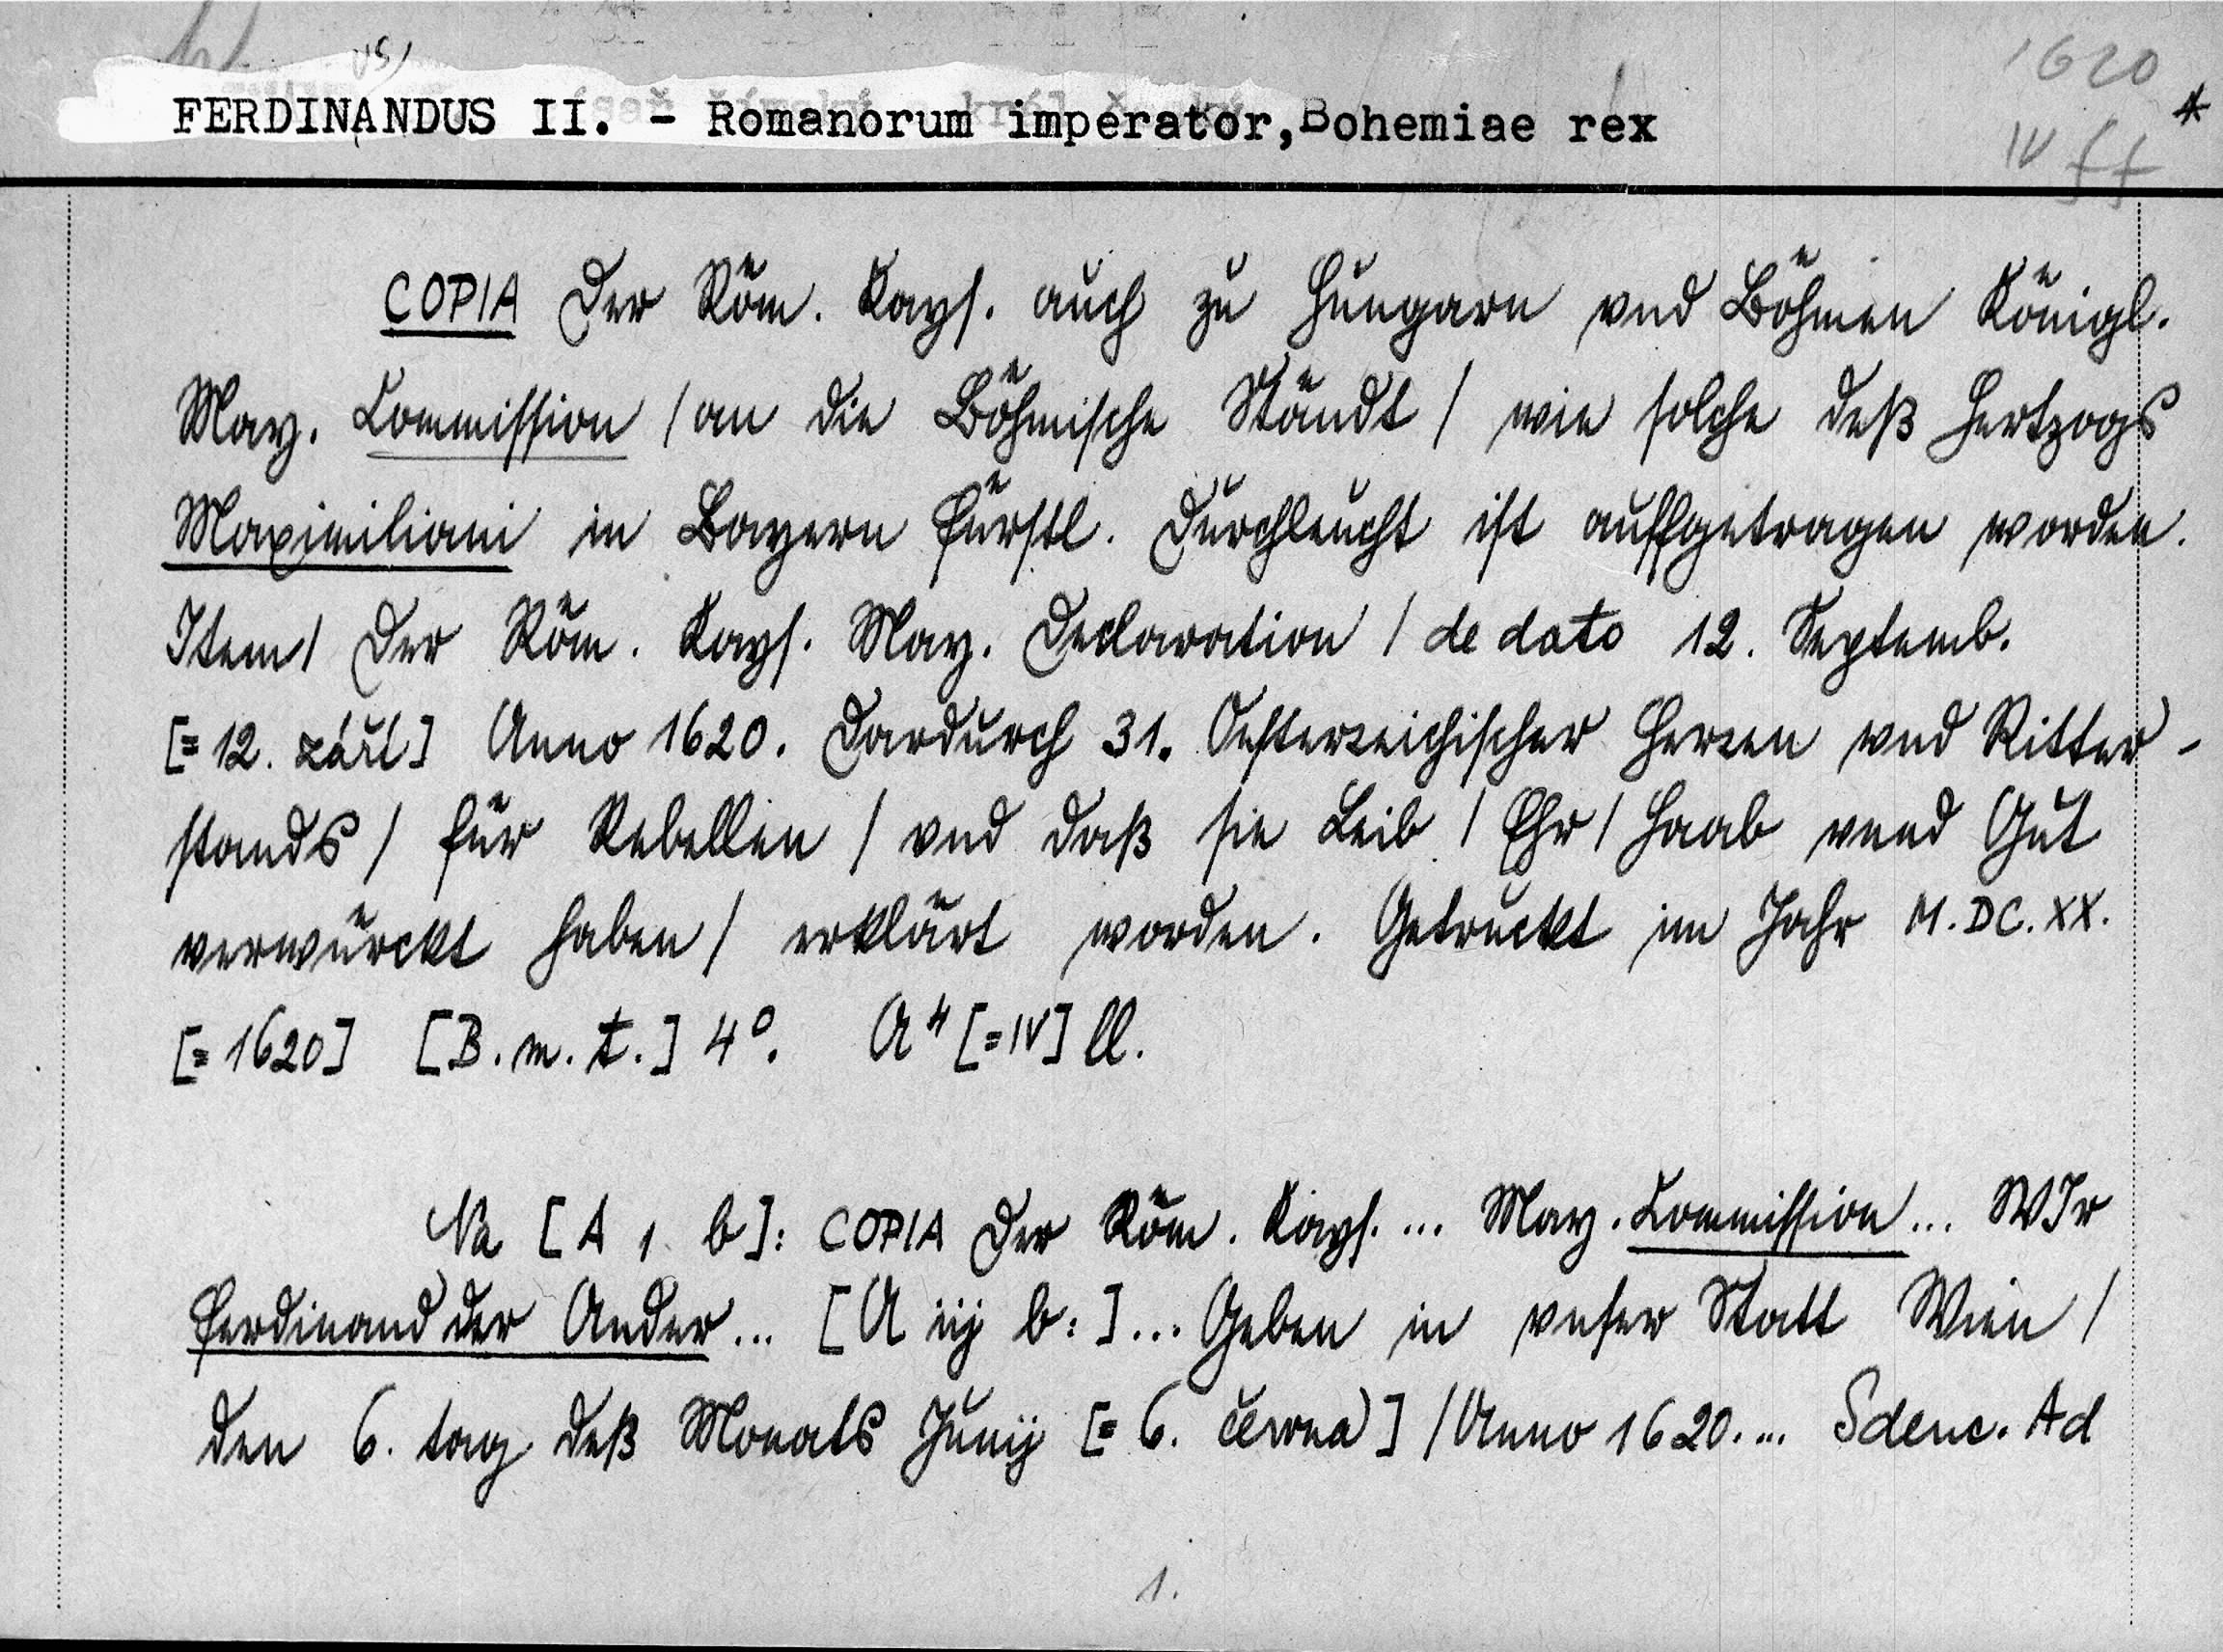 1620
FERDINANDUS II. - Romanorum imperator, Bohemiae rex *
IV ff
COPIA Der Röm. Kays. auch zu Hungarn vnd Böhmen Königl.
May. Commission / an die Böhmische Ständt / wie solche deß Hertzogs
Maximiliani in Bayern Fürstl. Durchleucht ist auffgetragen worden.
Item / Der Röm. Kays. May. Declaration / de dato 12. Septemb.
[= 12. září] Anno 1620. Dardurch 31. Oesterreichischer Herren vnd Ritter-
stands / für Rebellen / vnd daß sie Leib / Ehr / Haab vnnd Gut
verwürckt haben / erklärt worden. Getruckt im Jahr M.DC.XX.
[= 1620] [B. m. t.] 4°. A⁴ [= IV] ll.
Na [A 1 b]: COPIA Der Röm. Kays. ... May. Commission ... WJr
Ferdinand der Ander ... [A iij b:] ... Geben in vnser Statt Wien /
den 6. tag deß Monats Junij [= 6. června] / Anno 1620. ... Sdenc. Ad
1.